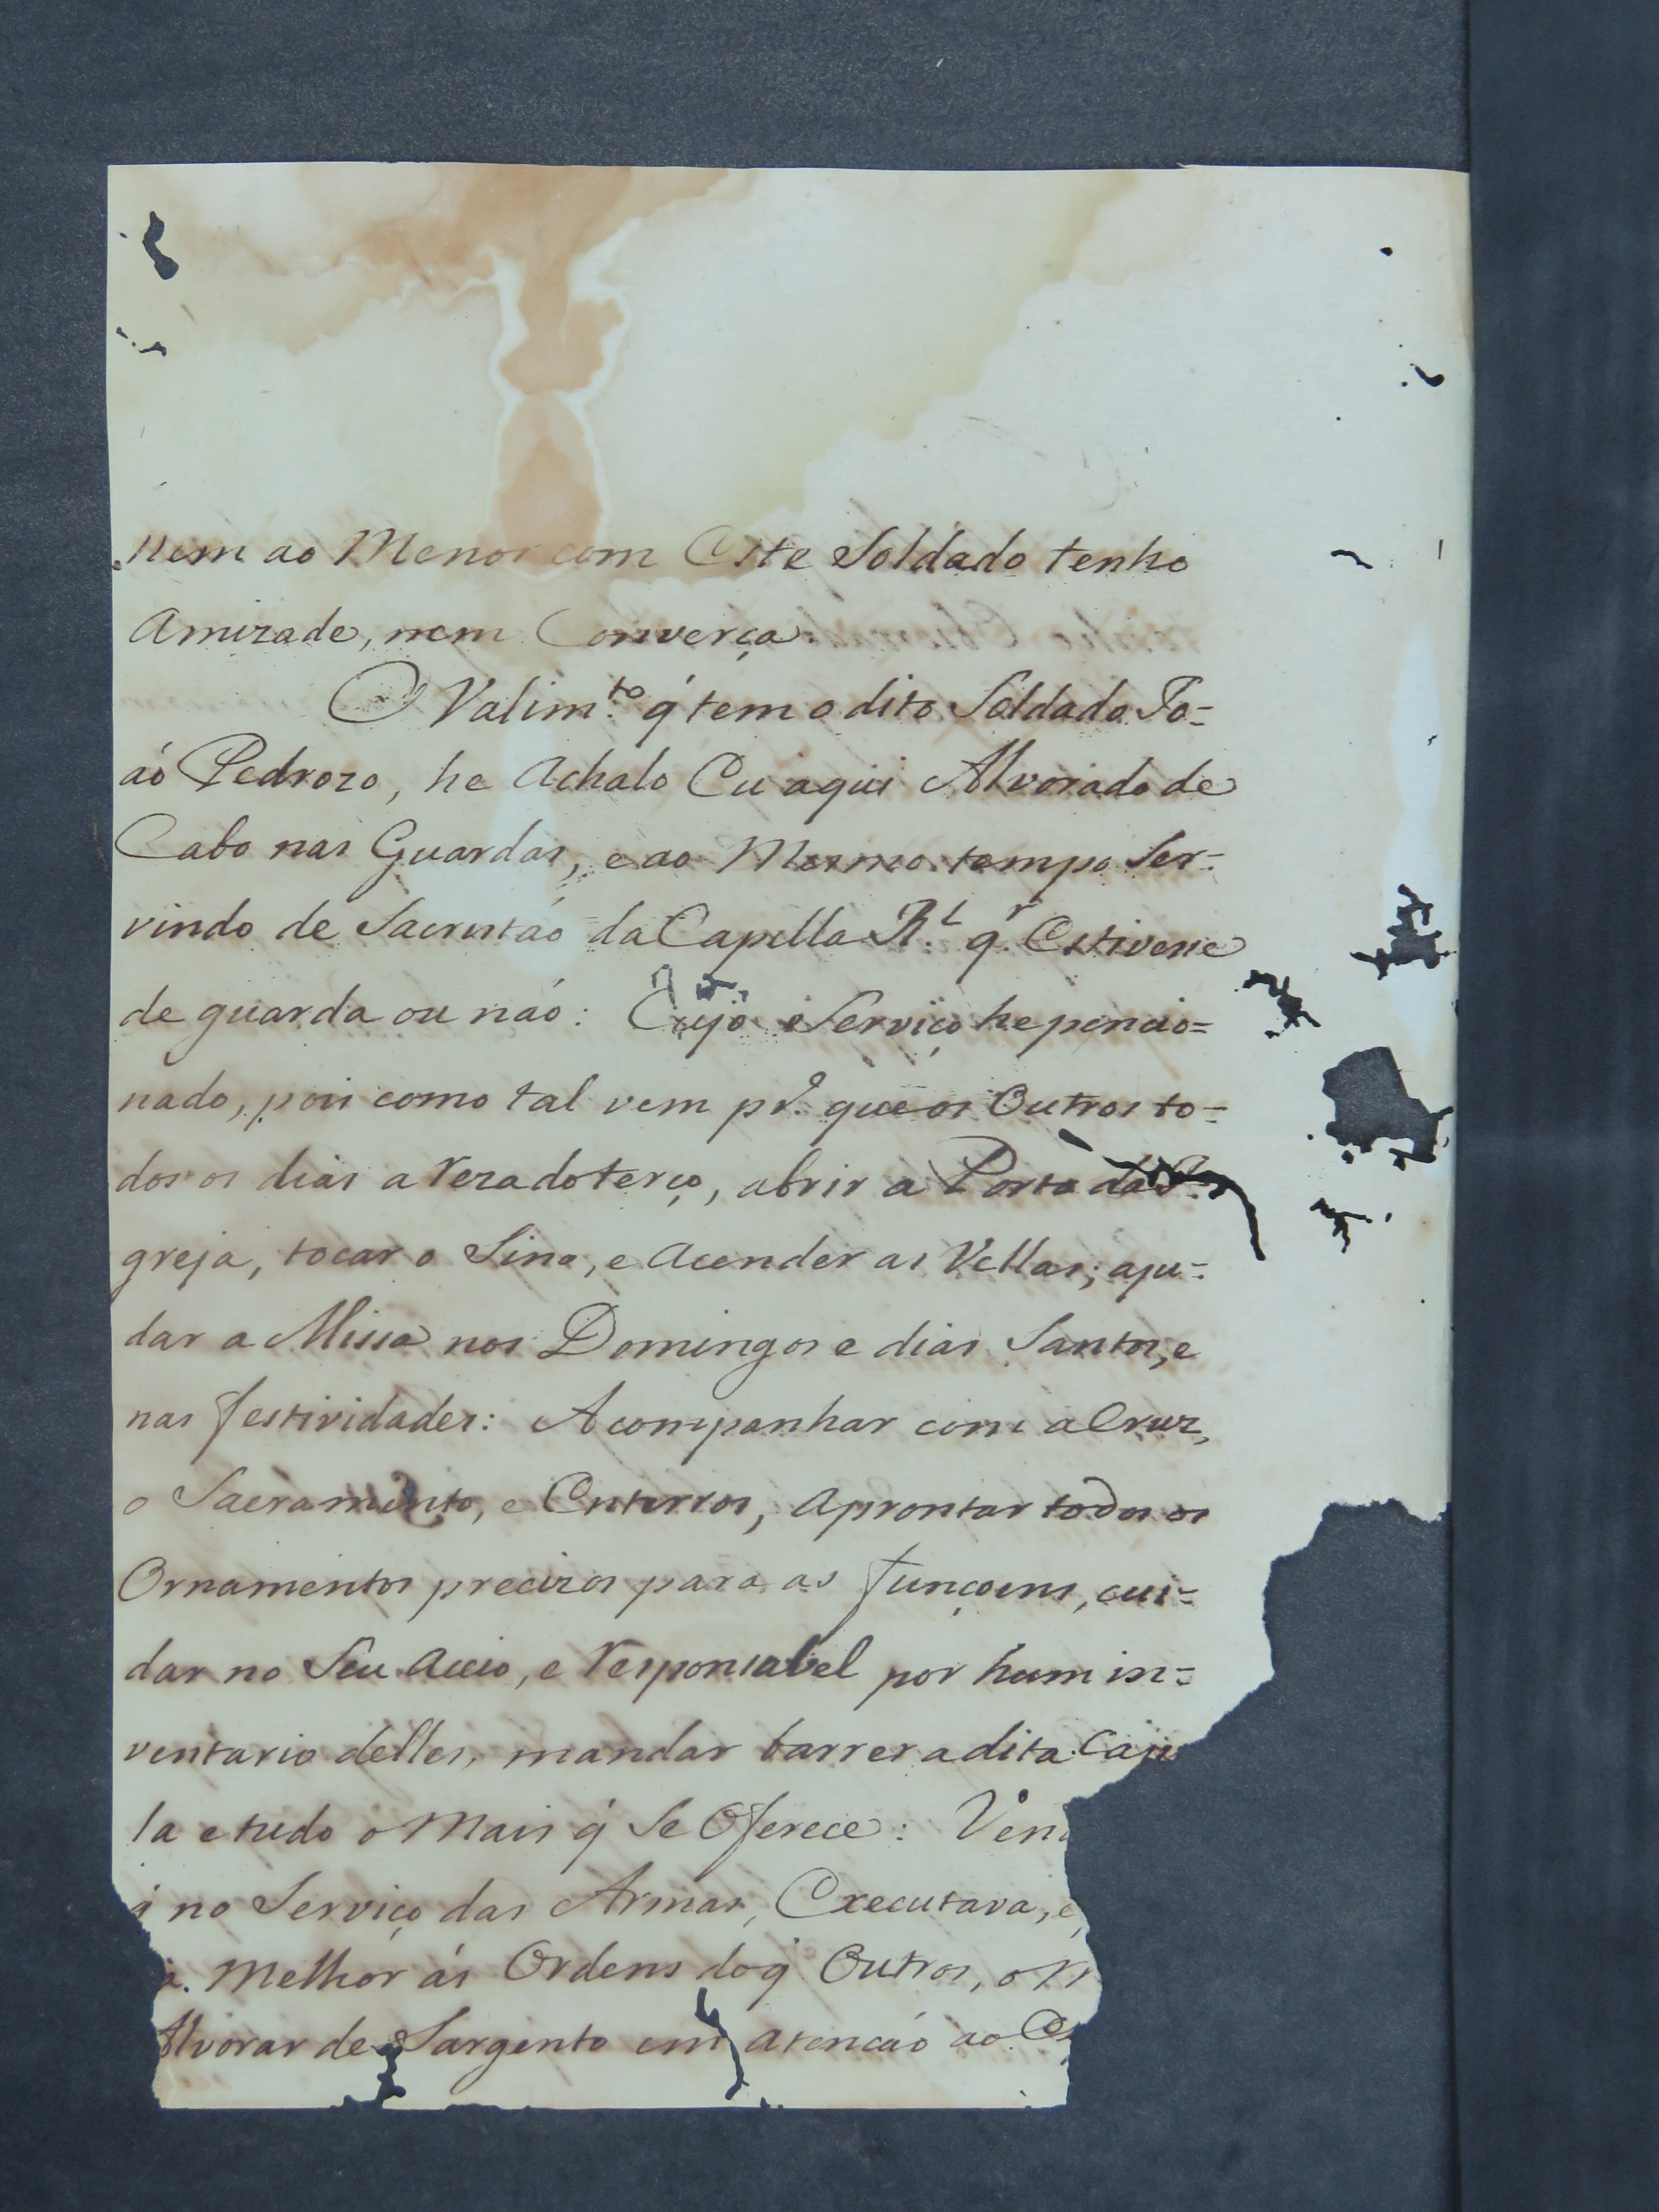 nem ao Menor com Este Soldado tenho
Amizade, nem Converça.
O Valim.to q́ tem o dito Soldado Jo=
áo Pedrozo, he Achalo Eu aqui Alvorado de
Cabo nas Guardas, e ao Mesmo tempo Ser=
vindo de Sacristáo da Capella R.l q.r Estivesse
de guarda ou náo: Cujo Serviço he pencio=
nado, pois como tal vem pr.o que os Outros to=
dos os dias a reza do terço, abrir a Porta da I=
greja, tocar o Sino, e Acender as Vellas; aju=
dar a Missa nos Domingos e dias Santos, e
nas festividades: Acompanhar com a Cruz,
o Sacramento, e Enterros, Aprontar todos os
Ornamentos precizos para as funçoens, cui=
dar no Seu Aceio, e responsabel por hum in=
ventario delles, mandar barrer a dita Cap
la e tudo o Mais q́ Se Oferece: Ven
no Serviço das Armas, Executava, e
Melhor ás Ordens do q́ Outros, o
Alvorar de Sargento em atencáo ao